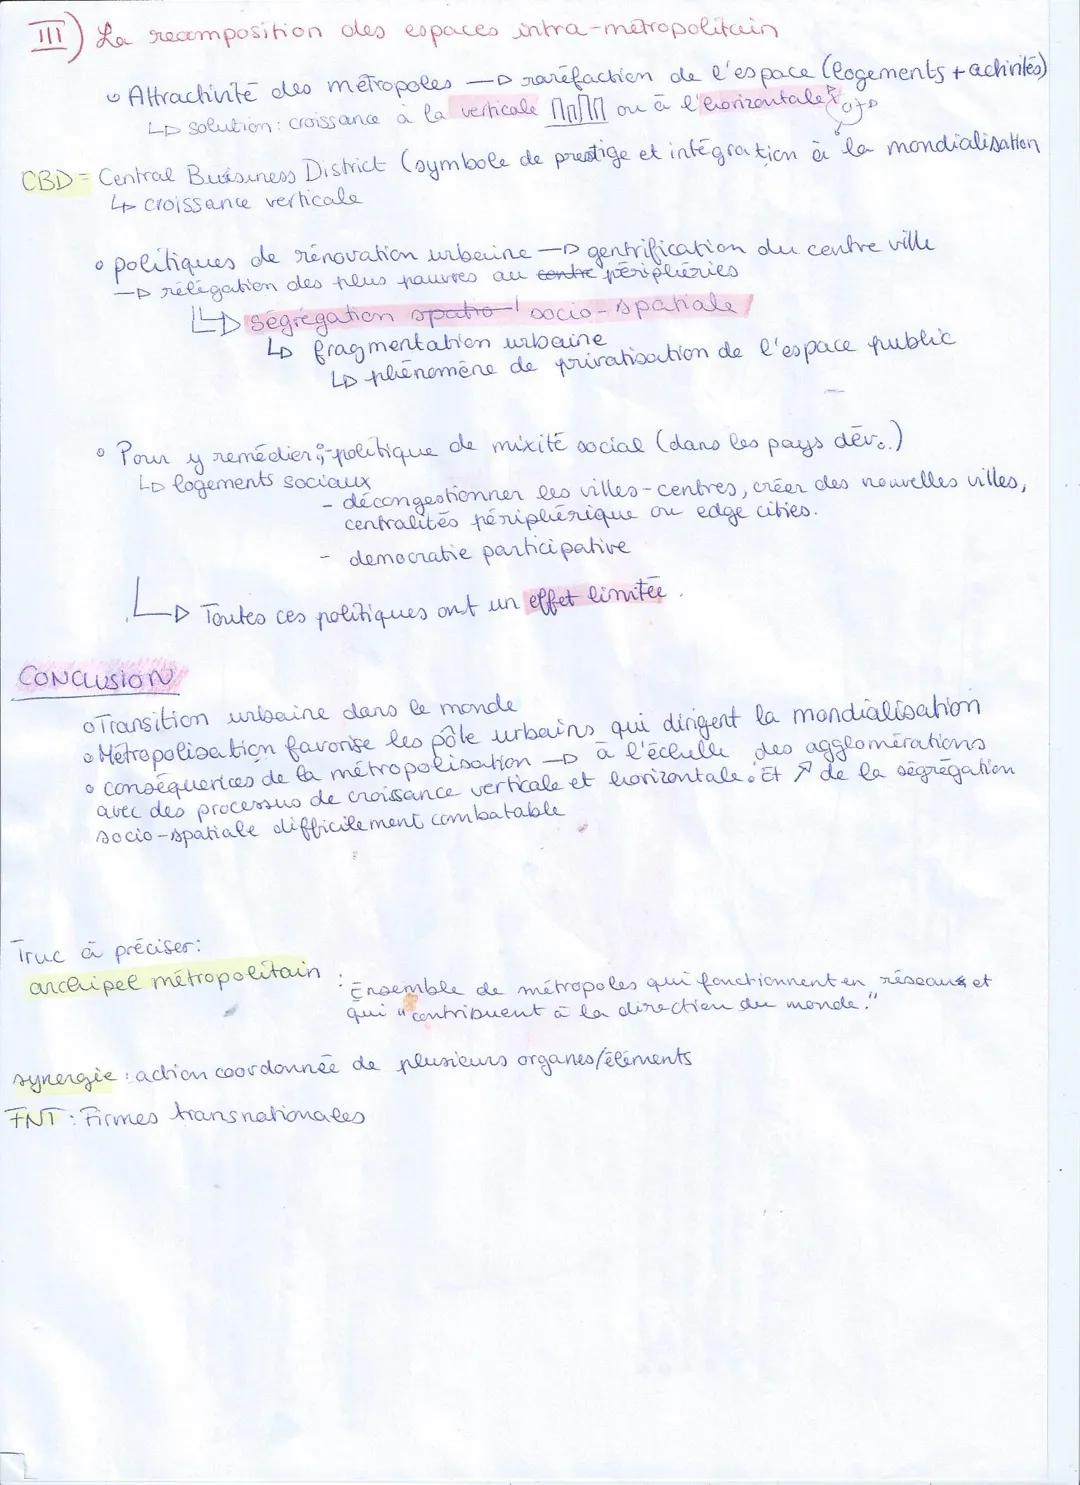 III) La recomposition des espaces intra-métropolitain
Attractivité des métropoles → raréfaction de l'espace (logements + activités)
↳ solution : croissance à la verticale ou à l'horizontale
CBD = Central Buisiness District (symbole de prestige et intégration à la mondialisation
↳ croissance verticale
politiques de rénovation urbaine → gentrification du centre ville
→ rélégation des plus pauvres au centre périphéries
↳ ségrégation spatio socio-spatiale
↳ fragmentation urbaine
↳ phénomène de privatisation de l'espace public
Pour y remédier : politique de mixité social (dans les pays dév.)
↳ logements sociaux
- décongestionner les villes-centres, créer des nouvelles villes,
centralités périphérique ou edge cities.
- democratie participative
↳ Toutes ces politiques ont un effet limitée.
CONCLUSION
Transition urbaine dans le monde
Métropolisation favorise les pôle urbains qui dirigent la mondialisation
conséquences de la métropolisation → à l'échelle des agglomérations
avec des processus de croissance verticale et horizontale. Et ↗ de la ségrégation
socio-spatiale difficilement combatable
Truc à préciser :
archipel métropolitain : Ensemble de métropoles qui fonctionnent en réseaux et
qui "contribuent à la direction du monde."
synergie : action coordonnée de plusieurs organes/éléments
FNT : Firmes transnationales